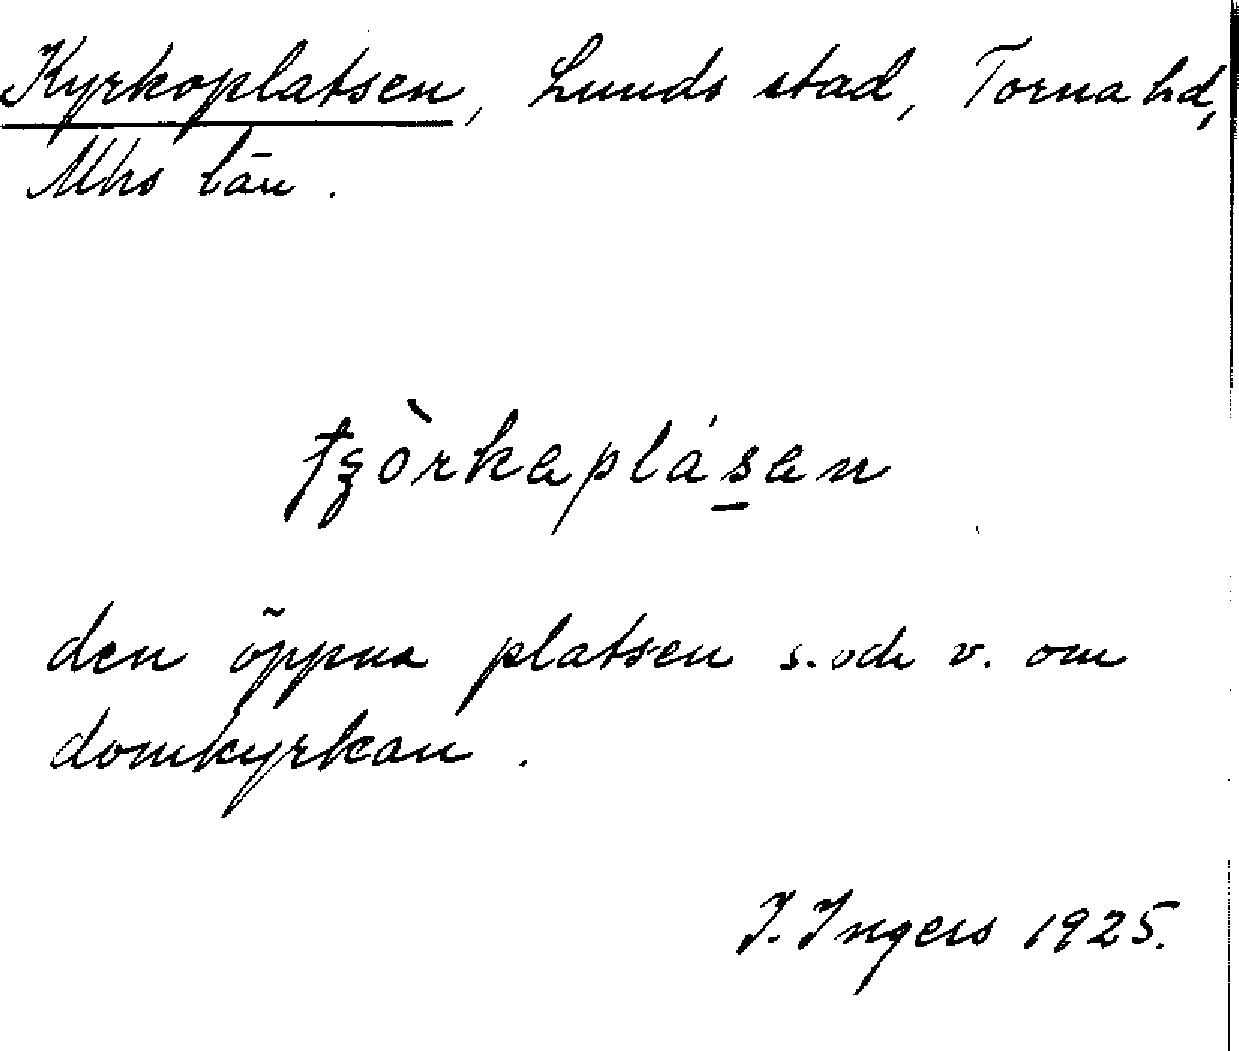 Kyrkoplatsen, Lunds stad, Torna hd,
Mhs län.
tȥòrkaplásan
den öppna platsen s. och v. om
domkyrkan.
I. Ingers 1925.